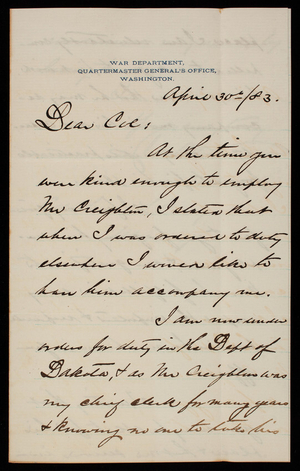 WAR DEPARTMENT,
QUARTERMASTER GENERAL'S OFFICE,
WASHINGTON.
April 30th/83.
Dear Col:
At the time you
were kind enough to employ
Mr Creighton, I stated that
when I was ordered to duty
elsewhere I would like to
have him accompany me.
I am now under
orders for duty in the Dept of
Dakota, & as Mr Creighton was
my chief clerk for many years
& knowing no one to take his